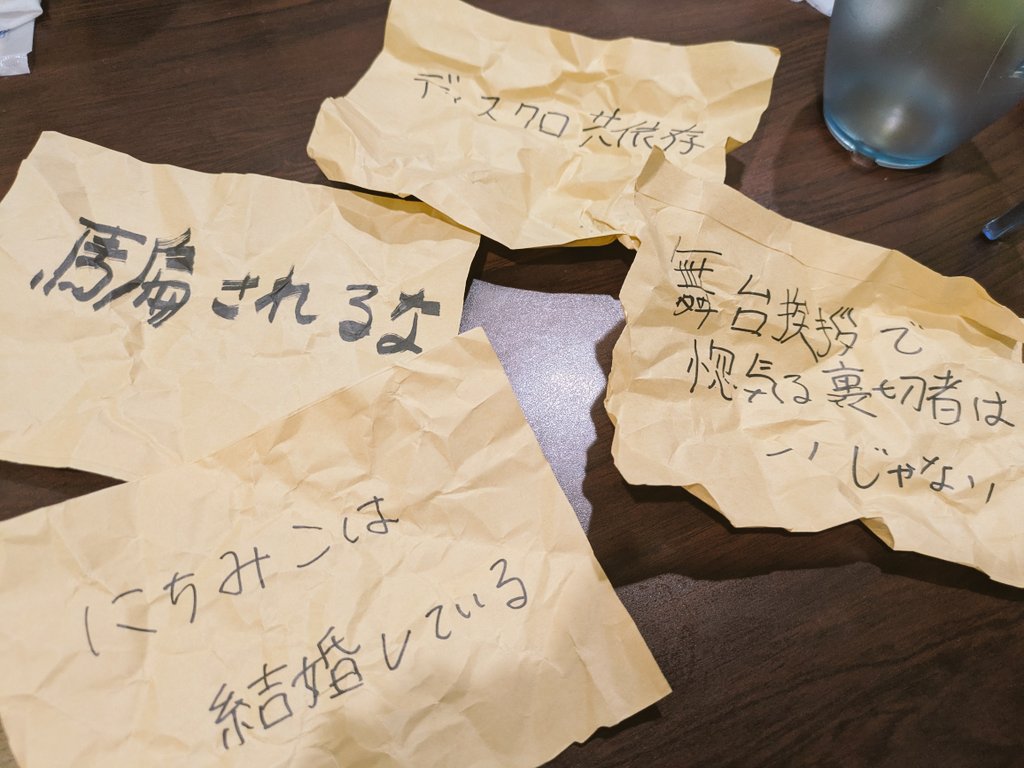 ディスクロ共依存
騙されるな
舞台挨拶で
惚気る裏切者は
いじゃない
にちみこは
結婚している